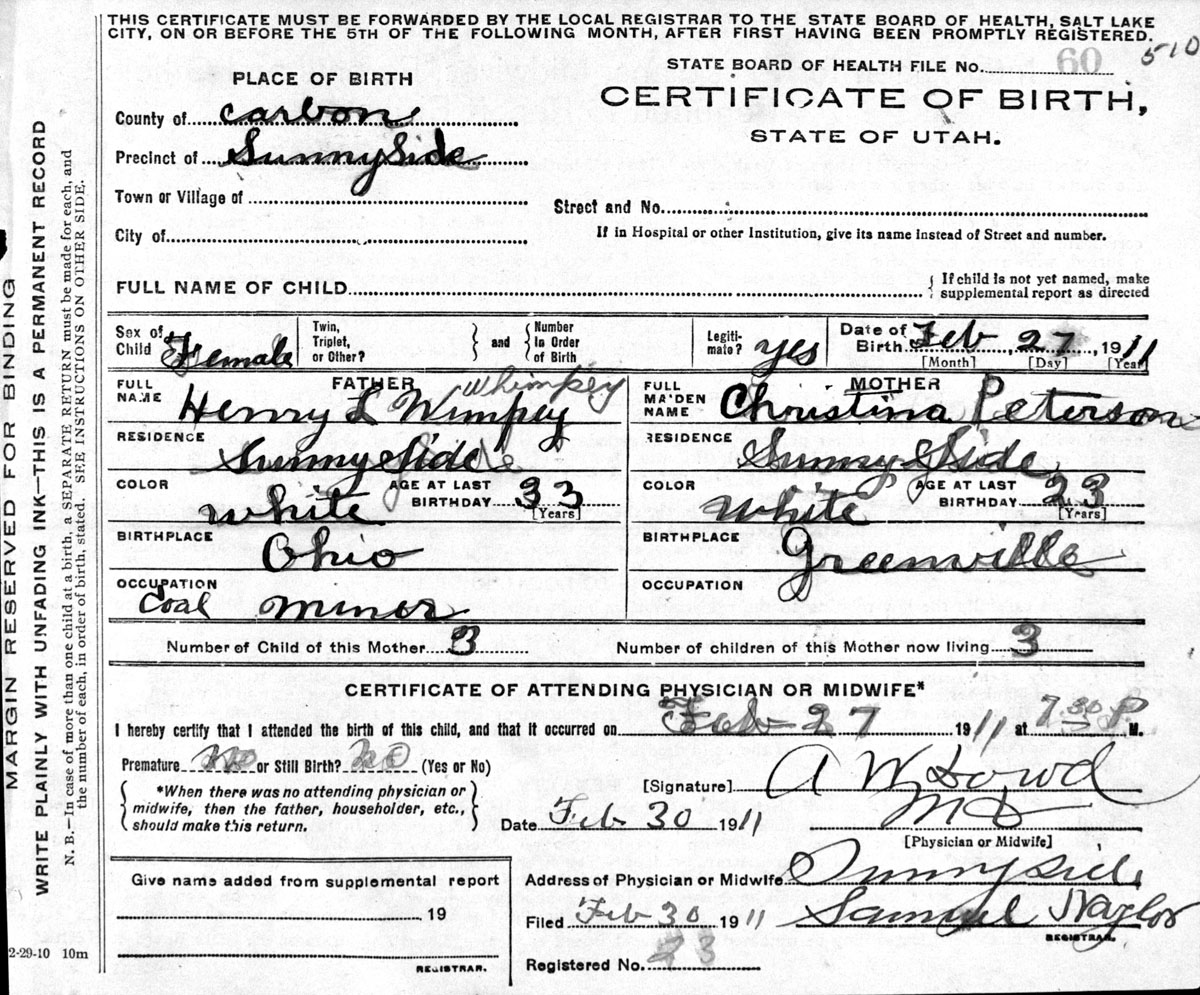 THIS CERTIFICATE MUST BE FORWARDED BY THE LOCAL REGISTRAR TO THE STATE BOARD OF HEALTH, SALT LAKE
CITY, ON OR BEFORE THE 5TH OF THE FOLLOWING MONTH, AFTER FIRST HAVING BEEN PROMPTLY REGISTERED.
510
PLACE OF BIRTH
STATE BOARD OF HEALTH FILE No. 60
CERTIFICATE OF BIRTH,
STATE OF UTAH.
County of Carbon
Precinct of Sunny Side
Town or Village of
Street and No.
City of
If in Hospital or other Institution, give its name instead of Street and number.
FULL NAME OF CHILD
If child is not yet named, make
supplemental report as directed
Sex of Child Female
Twin, Triplet, or Other?
and
Number In Order of Birth
Legiti-mate? yes
Date of Birth Feb, 27, 1911
[Month] [Day] [Year]
FATHER
Whimpey
FULL NAME Henry L Wimpey
RESIDENCE Sunny Side
COLOR White
AGE AT LAST BIRTHDAY 33
[Years]
BIRTHPLACE Ohio
OCCUPATION Coal miner
MOTHER
FULL MAIDEN NAME Christina Peterson
RESIDENCE Sunny Side
COLOR White
AGE AT LAST BIRTHDAY 23
[Years]
BIRTHPLACE Greenville
OCCUPATION
Number of Child of this Mother 3
Number of children of this Mother now living 3
CERTIFICATE OF ATTENDING PHYSICIAN OR MIDWIFE*
I hereby certify that I attended the birth of this child, and that it occurred on Feb 27 1911 at 7 30 P M.
Premature no or Still Birth? no (Yes or No)
*When there was no attending physician or
midwife, then the father, householder, etc.,
should make this return.
[Signature] A W Dowd
M D
Date Feb 30 1911
[Physician or Midwife]
Give name added from supplemental report
19
REGISTRAR.
Address of Physician or Midwife Sunnyside
Filed Feb 30 1911 Samuel Naylor
REGISTRAR.
Registered No. 23
2-29-10 10m
MARGIN RESERVED FOR BINDING
WRITE PLAINLY WITH UNFADING INK—THIS IS A PERMANENT RECORD
N. B.—In case of more than one child at a birth, a SEPARATE RETURN must be made for each, and
the number of each, in order of birth, stated. SEE INSTRUCTIONS ON OTHER SIDE.